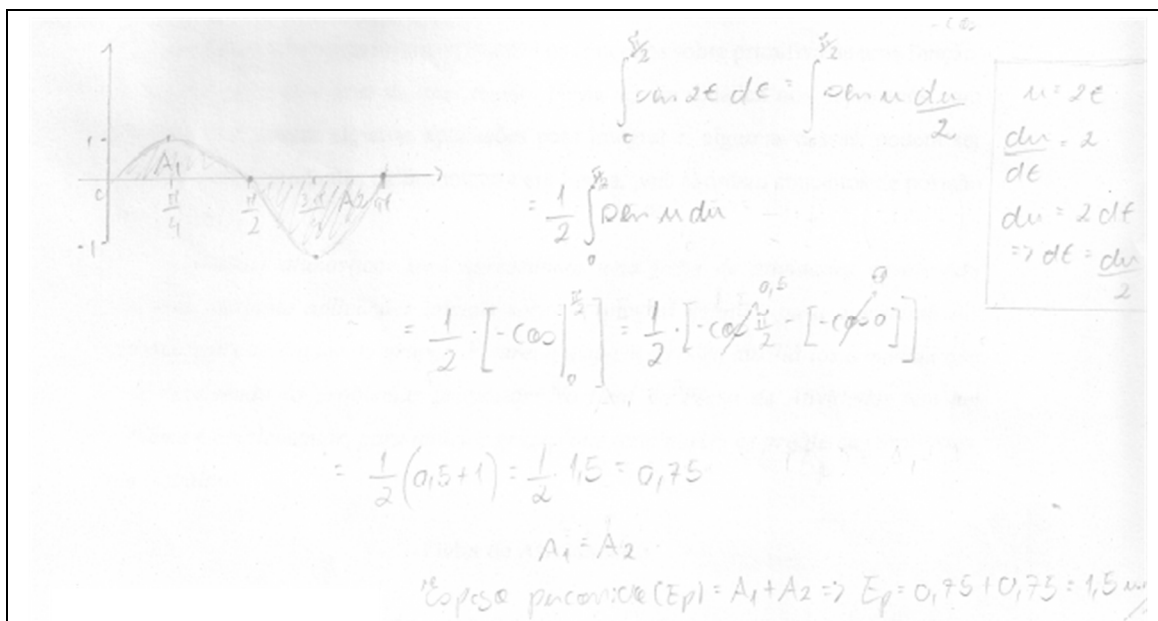 1
A1
0
π/4
π/2
3π/4
A2
π
-1
∫₀^{π/2} sen 2t dt = ∫₀^{π/2} sen u du/2
u = 2t
du/dt = 2
du = 2 dt
=> dt = du/2
= 1/2 ∫₀^{π/2} sen u du
= 1/2 · [-cos |₀^{π/2}] = 1/2 · [-cos π/2 - [-cos 0]]
0,5
= 1/2 (0,5+1) = 1/2 1,5 = 0,75
A1 = A2
Espaço percorrido (Ep) = A1 + A2 => Ep = 0,75 + 0,75 = 1,5